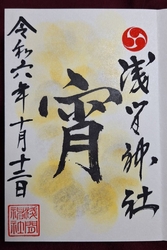 浅間神社
宵
令和六年十月十二日
浅間
神社